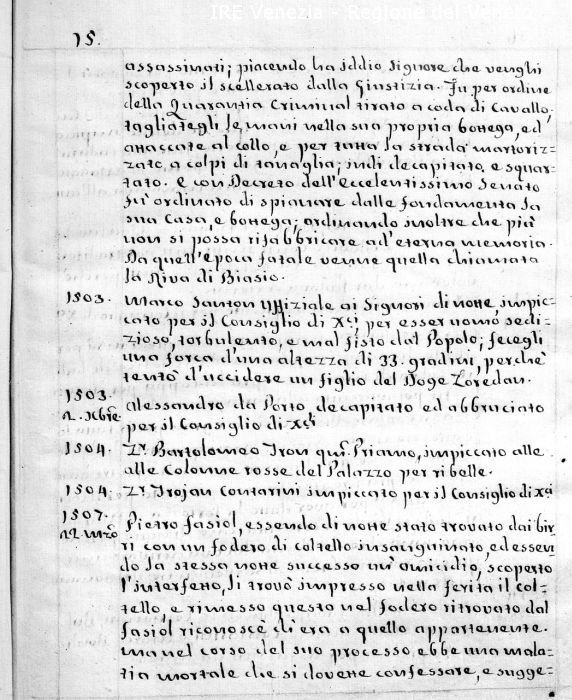 IRE Venezia - Regione del Veneto
15.
assassinati; piacendo ha iddio Signore che venghi
scoperto il scellerato dalla Giustizia. Fu per ordine
della Quarantia Criminal tirato a coda di Cavallo,
tagliategli le mani nella sua propria bottega, ed
attaccate al collo, e per tutta la strada martoriz=
zato a colpi di tanaglia; indi decapitato e squar=
tato. e con Decreto dell'eccelentissimo Senato
fu' ordinato di spianare dalle fondamenta la
sua Casa, e bottega; ordinando inoltre che più
non si possa rifabbricare ad'eterna memoria.
Da quell'epoca fatale venne quella chiamata
la Riva di Biasio.
1503. Marco Santon Uffiziale ai Signori di notte, impic=
cato per il Consiglio di Xci, per esser uomo sedi=
zioso, torbulento, e mal visto dal Popolo; fecegli
una forca d'una altezza di 33. gradini, perchè
tentò d'uccidere un figlio del Doge Loredan.
1503. Alessandro da Porto, decapitato ed abbruciato
2. Xcbre. per il Consiglio di Xci
1504. Zr. Bartolomeo Tron qum. Priamo, impiccato alle
alle Colonne rosse del Palazzo per ribelle.
1504. Zr. Trojan Contarini impiccato per il Consiglio di Xci
1507. Pietro Fasiol, essendo di notte stato trovato dai bir=
12 mzo ri con un fodero di coltello insanguinato, ed essen
do la stessa notte successo un'omicidio, scoperto
l'interfetto, li trovò impresso nella ferita il col=
tello, e rimesso questo nel fodero ritrovato dal
fasiol riconoscè di era a quello appartenente.
ma nel corso del suo processo, ebbe una mala=
tia mortale che si dovette confessare, e sugge=